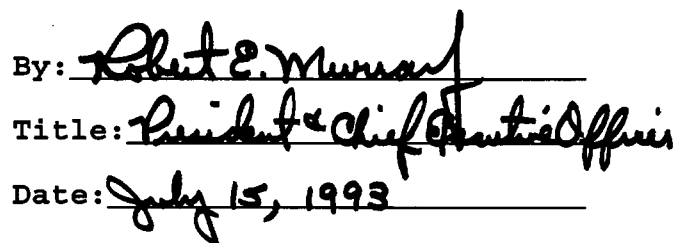 By: Robert E. Murray
Title: President & Chief Executive Officer
Date: July 15, 1993